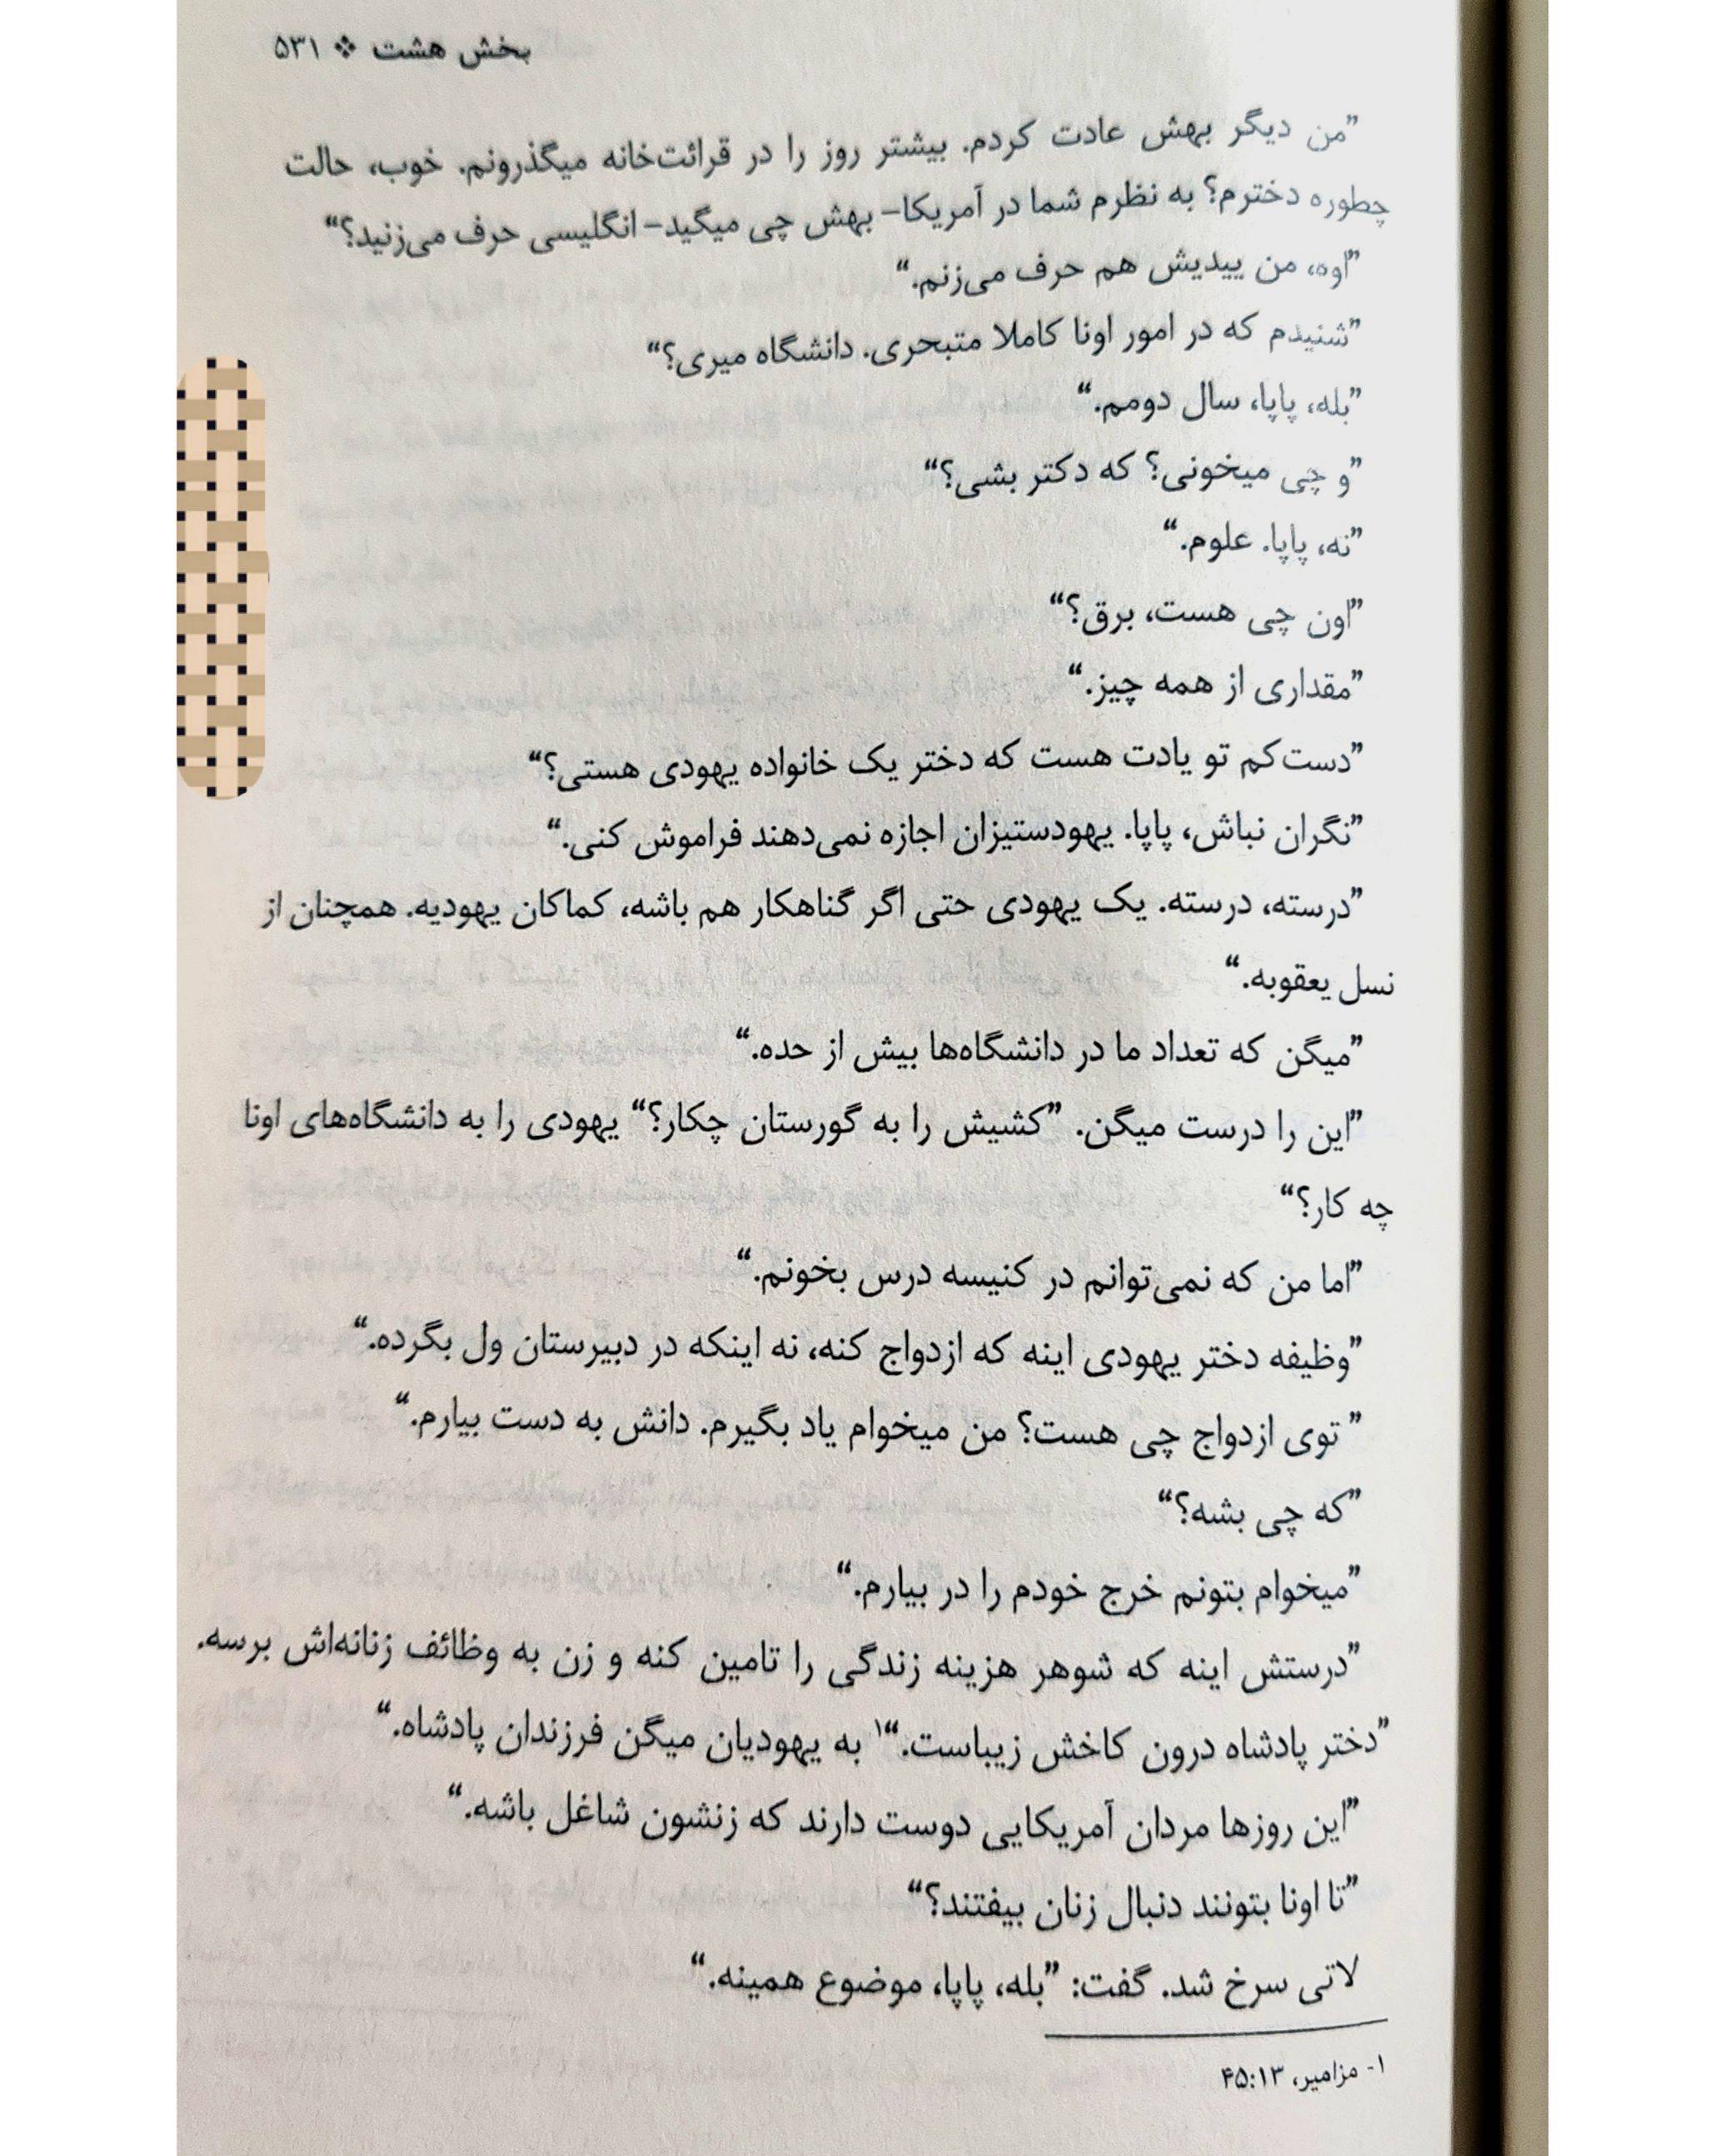 بخش هشت ❖ ۵۳۱
”من دیگر بهش عادت کردم. بیشتر روز را در قرائت‌خانه میگذرونم. خوب، حالت
چطوره دخترم؟ به نظرم شما در آمریکا- بهش چی میگید- انگلیسی حرف می‌زنید؟“
”اوه، من ییدیش هم حرف می‌زنم.“
”شنیدم که در امور اونا کاملا متبحری. دانشگاه میری؟“
”بله، پاپا، سال دومم.“
”و چی میخونی؟ که دکتر بشی؟“
”نه، پاپا. علوم.“
”اون چی هست، برق؟“
”مقداری از همه چیز.“
”دست‌کم تو یادت هست که دختر یک خانواده یهودی هستی؟“
”نگران نباش، پاپا. یهودستیزان اجازه نمی‌دهند فراموش کنی.“
”درسته، درسته. یک یهودی حتی اگر گناهکار هم باشه، کماکان یهودیه. همچنان از
نسل یعقوبه.“
”میگن که تعداد ما در دانشگاه‌ها بیش از حده.“
”این را درست میگن. ”کشیش را به گورستان چکار؟“ یهودی را به دانشگاه‌های اونا
چه کار؟“
”اما من که نمی‌توانم در کنیسه درس بخونم.“
”وظیفه دختر یهودی اینه که ازدواج کنه، نه اینکه در دبیرستان ول بگرده.“
”توی ازدواج چی هست؟ من میخوام یاد بگیرم. دانش به دست بیارم.“
”که چی بشه؟“
”میخوام بتونم خرج خودم را در بیارم.“
”درستش اینه که شوهر هزینه زندگی را تامین کنه و زن به وظائف زنانه‌اش برسه.
”دختر پادشاه درون کاخش زیباست.“۱ به یهودیان میگن فرزندان پادشاه.“
”این روزها مردان آمریکایی دوست دارند که زنشون شاغل باشه.“
”تا اونا بتونند دنبال زنان بیفتند؟“
لاتی سرخ شد. گفت: ”بله، پاپا، موضوع همینه.“
۱- مزامیر، ۴۵:۱۳